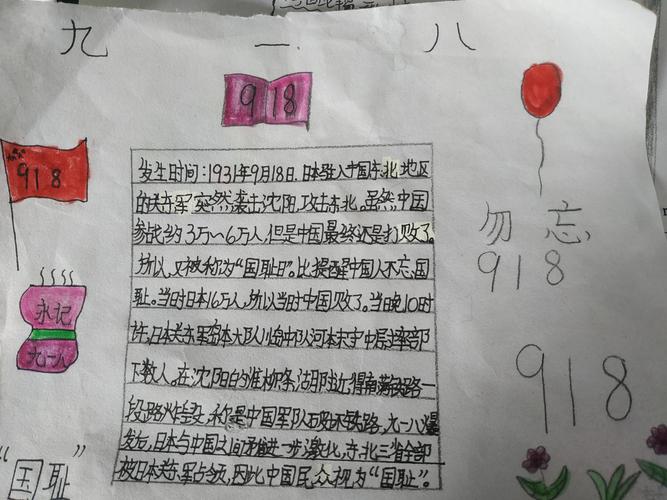 九 一 八
918
918
发生时间：1931年9月18日，日本驻入中国东北地区
的关东军突然袭击沈阳，攻击东北。虽然中国
参战约3万~6万人，但是中国最终还是打败了。
所以，又被称为“国耻日”。比提醒中国人不忘，国
耻。当时日本16万人，所以当时中国败了。当晚10时
许，日本关东军岛本大队川岛中队河本末宇中尉率部
下数人，在沈阳的柳条湖附近，将南满铁路一
段路炸毁，称是中国军队破坏铁路，九一八爆
发后，日本与中国之间矛盾进一步激化，东北三省全部
被日本关东军占领，因此中国民众视为“国耻”。
勿忘
918
永记
九一八
918
“国耻”